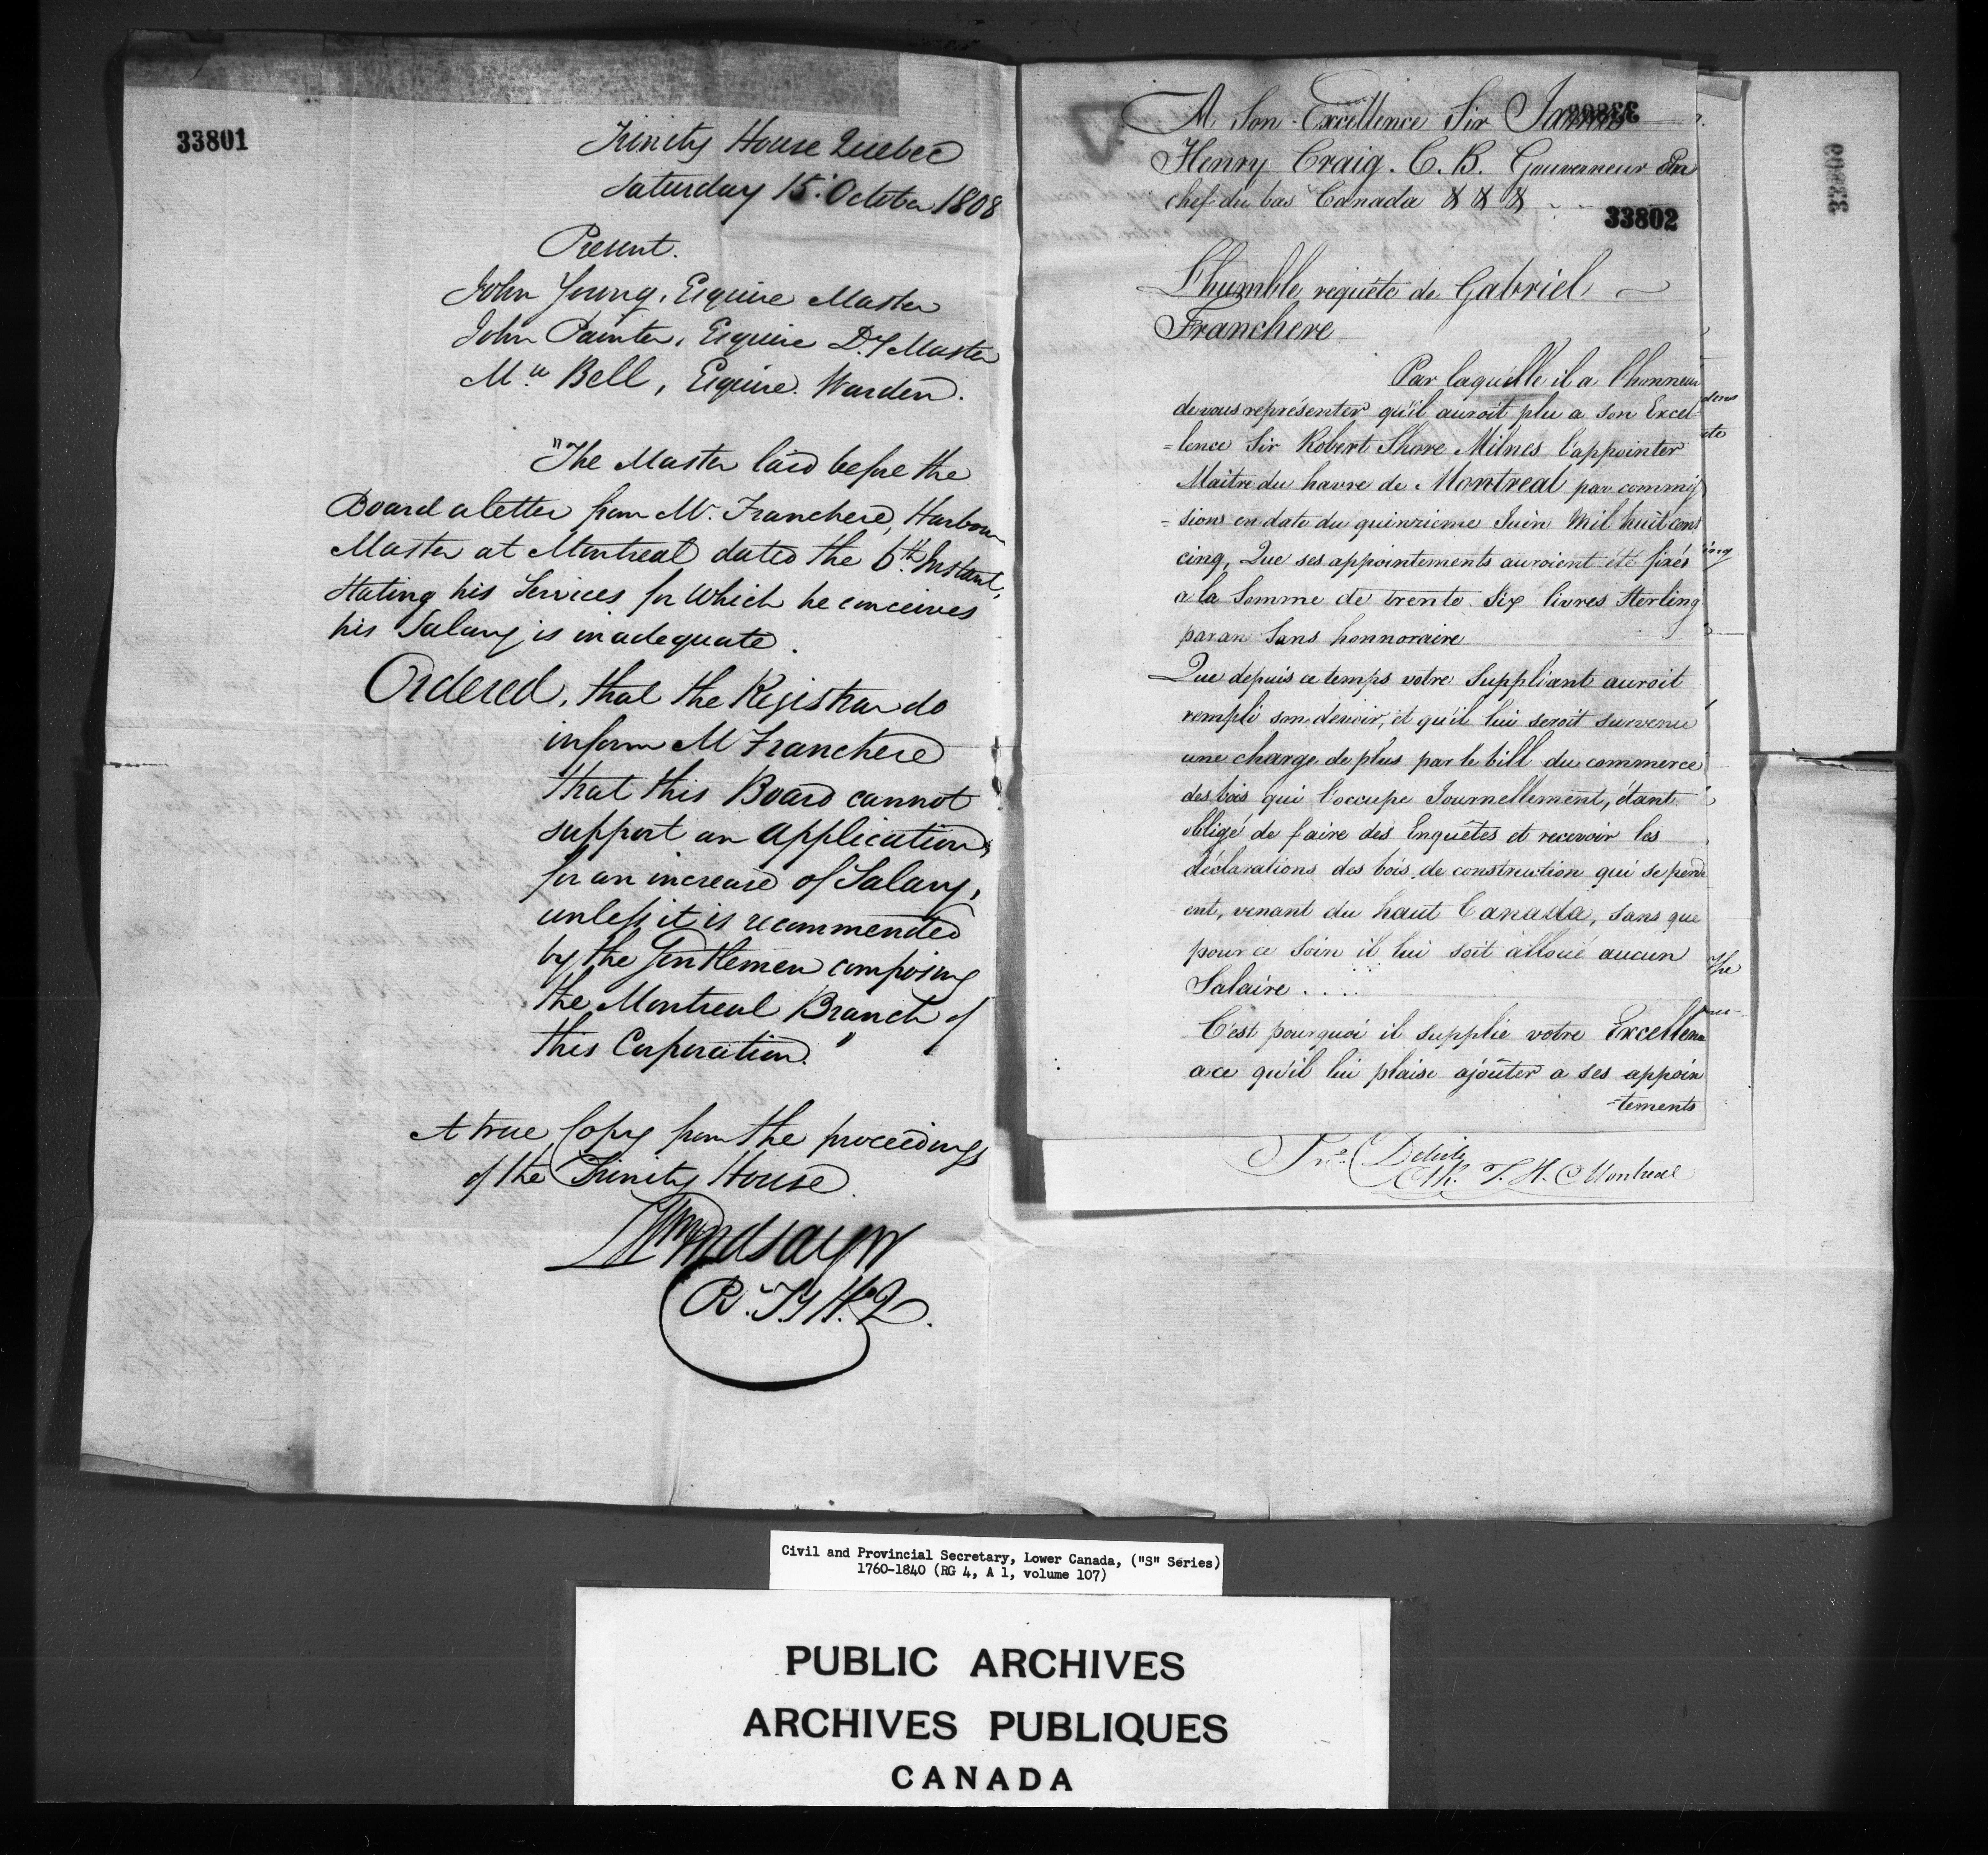 33801
Trinity House Quebec
Saturday 15. October 1808
Present.
John Young, Esquire Master
John Painter, Esquire Dy Master
Mw Bell, Esquire. Warden.
"The Master laid before the
Board a letter from Mr. Franchere, Harbour
Master at Montreal dated the 6th. Instant,
Stating his Services for which he conceives
his Salary is inadequate.
Ordered, that the Registrar do
inform M Franchere
that this Board cannot
support an application,
for an increase of Salary,
unless it is recommended
by the Gentlemen composing
the Montreal Branch of
this Corporation."
A true Copy from the proceedings
of the Trinity House.
Lindsay
R. Ty H. Q.
A Son Excellence Sir James
Henry Craig. C. B. Gouverneur En
chef du bas Canada & & &
33802
L'humble requête de Gabriel
Franchere
Par laquelle il a l'honneur
de vous représenter qu'il auroit plu a son Excel-
=lence Sir Robert Shore Milnes l'appointer
Maitre du havre de Montreal par commis
=sions en date du quinzieme Juin Mil huit cens
cinq, Que ses appointements auroient été fixés
a la Somme de trente Six livres Sterling
par an Sans honnoraire
Que depuis ce temps votre Suppliant auroit
rempli son devoir, et qu'il lui seroit survenu
une charge de plus par le bill du commerce
des bois qui l'occupe Journellement, étant
obligé de faire des Enquêtes et recevoir les
déclarations des bois de construction qui se perd
ent, venant du haut Canada, sans que
pour ce Soin il lui soit alloué aucun
Salaire....
C'est pourquoi il supplie votre Excellence
a ce qu'il lui plaise ajoûter a ses appoin
=tements
Delisle
Clk. T. H. Montreal
33803
the
Civil and Provincial Secretary, Lower Canada, ("S" Series)
1760-1840 (RG 4, A 1, volume 107)
PUBLIC ARCHIVES
ARCHIVES PUBLIQUES
CANADA